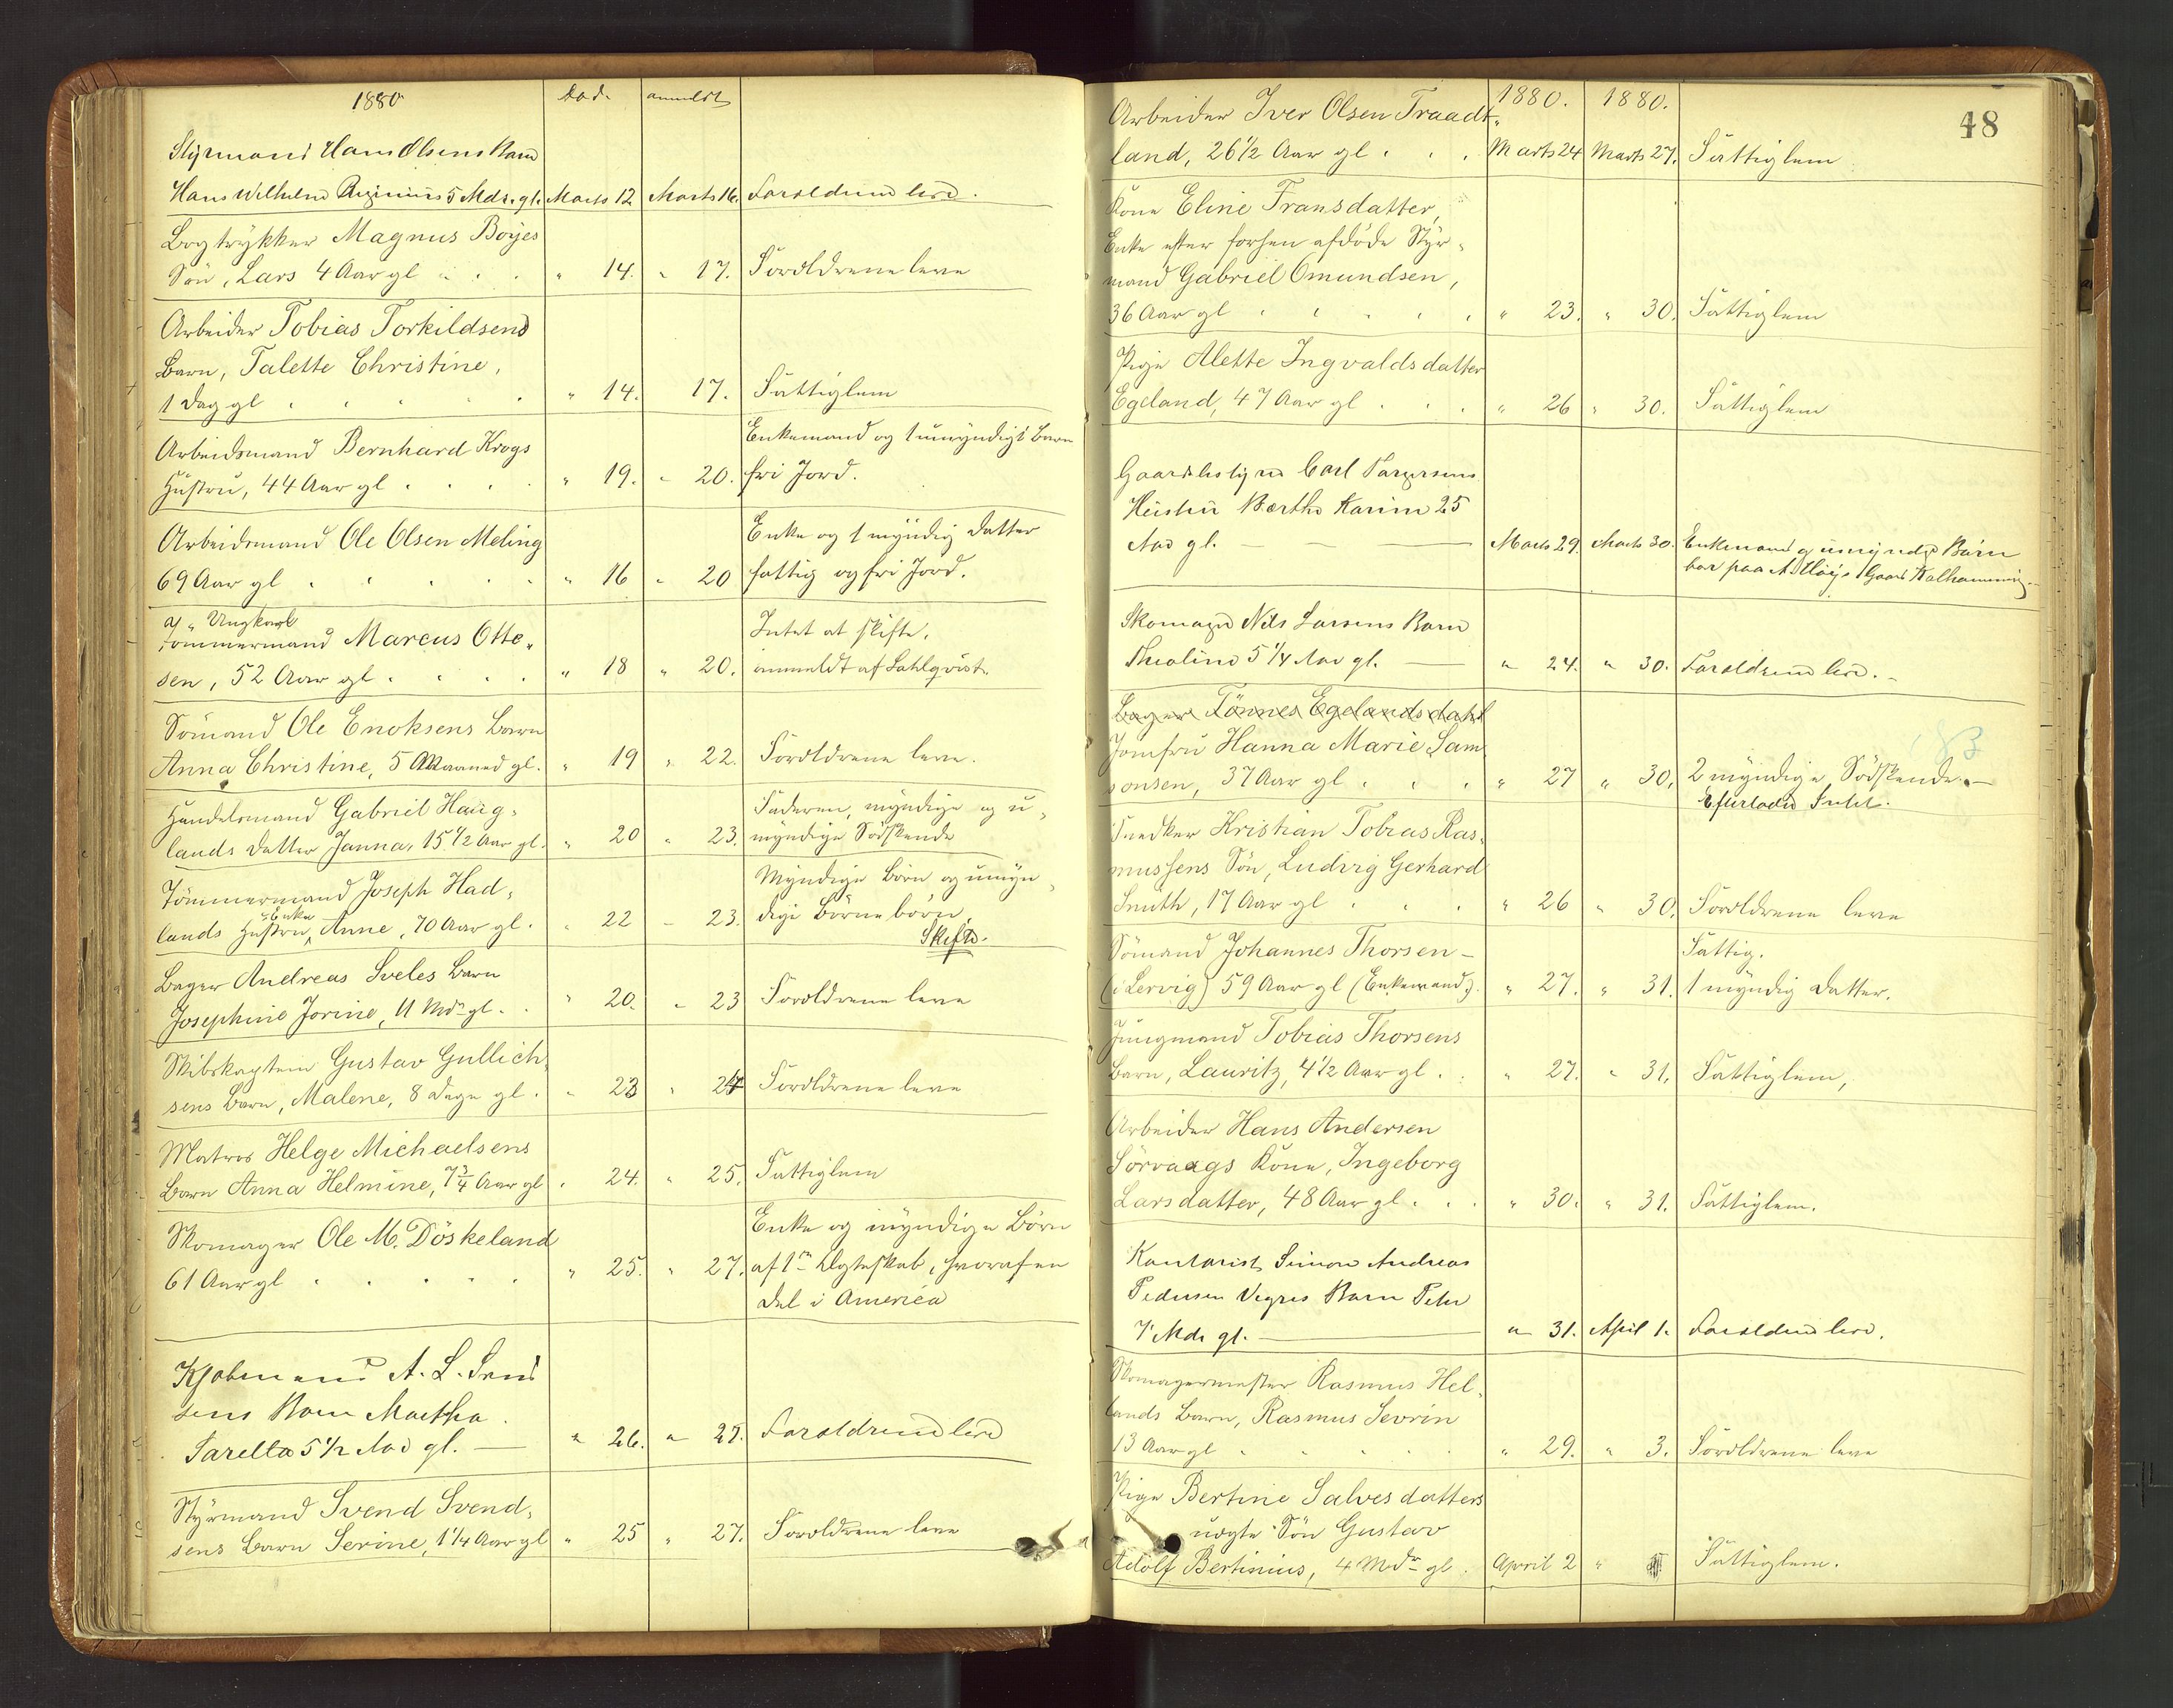 1880 Død. anmeldt
Styrmand Hans Olsens Barn
Hans Wilhelm Reginius 5 Mdr. gl. Marts 12 Marts 16. Forældrene leve.
Bogtrykker Magnus Böyes
Sön, Lars 4 Aar gl " 14. " 17. Forældrene leve
Arbeider Tobias Torkildsens
Barn, Talette Christine,
1 Dag gl " 14. 17. Fattiglem
Arbeidsmand Bernhard Krogs Enkemand og 1 umyndigt Barn
Hustru, 44 Aar gl " 19. " 20. fri Jord.
Arbeidsmand Ole Olsen Meling Enke og 1 myndig Datter
69 Aar gl " 16 " 20 fattig og fri Jord.
Ungkarl
Tömmermand Marcus Otte- Intet at skifte.
sen, 52 Aar gl " 18 " 20. anmeldt af Dahlqvist.
Sömand Ole Enoksens Barn
Anna Christine, 5 Maaned gl. " 19 " 22. Forældrene leve.
Handelsmand Gabriel Haug- Faderen, myndige og u-
lands Datter Janna, 15 1/2 Aar gl. " 20 " 23. myndige Södskende
Tömmermand Joseph Had- Myndige Börn og umyn-
Enke
lands Hustru, Anne, 70 Aar gl. " 22 " 23. dige Börnebörn.
Skifte.
Bager Andreas Sveles Barn
Josephine Jorine, 11 Mdr gl. " 20. " 23 Forældrene leve
Skibskaptein Gustav Gullich-
sens Barn, Malene, 8 Dage gl. " 23 " 24 Forældrene leve
Matros Helge Michaelsens
Barn Anna Helmine, 7 3/4 Aar gl " 24. " 25. Fattiglem
Skomager Ole M. Döskeland Enke og myndige Börn
61 Aar gl " 25. " 27. af 1ste Ægteskab, hvoraf en
Del i America
Kjøbmand A. L. Svend
sens Barn Martha
Tarella 5 1/2 Aar gl. " 26. " 27. Forældrene leve
Styrmand Svend Svend-
sens Barn Serine, 1 1/4 Aar gl " 25 " 27. Forældrene leve
48
1880. 1880.
Arbeider Iver Olsen Traadt-
land, 26 1/2 Aar gl Marts 24 Marts 27. Fattiglem
Kone Eline Fransdatter,
Enke efter forhen afdöde Styr-
mand Gabriel Omundsen,
36 Aar gl " 23. " 30. Fattiglem
Pige Alette Ingvaldsdatter
Egeland, 47 Aar gl " 26 " 30. Fattiglem
Gaardbestyrer Carl Torgersens
Hustru Berthe Karine 25
Aar gl. Marts 29. Marts 30. Enkemand og umyndige Börn
bor paa Gaard Kalhammeren
Skomager Nils Larsens Barn
Theoline 5 1/4 Aar gl. " 24. " 30. Forældrene leve.
Bager Tönnes Egelandsdahl
Jomfru Hanna Marie Sam-
sonsen, 37 Aar gl " 27 " 30. 2 myndige Södskende.
Efterlader Intet.
Snedker Kristian Tobias Ras-
mussens Sön, Ludvig Gerhard
Smith, 17 Aar gl " 26 " 30. Forældrene leve
Sömand Johannes Thorsen Fattig.
(i Lervig) 59 Aar gl (Enkemand). " 27. " 31. 1 myndig Datter.
Jungmand Tobias Thorsens
Barn, Lauritz, 4 1/2 Aar gl. " 27. " 31. Fattiglem,
Arbeider Hans Andersen
Sörvaags Kone, Ingeborg
Larsdatter, 48 Aar gl. " 30. " 31. Fattiglem.
Kontorist Simon Andreas
Pedersen Vegres Barn Peter
7 Mdr gl. " 31. April 1. Forældrene leve.
Skomagermester Rasmus Hel-
lands Barn, Rasmus Sevrin
13 Aar gl " 29. " 3. Forældrene leve
Pige Bertine Salvesdatters
uægte Sön Gustav
Adolf Bertinius, 4 Mdr gl. April 2 " Fattiglem.